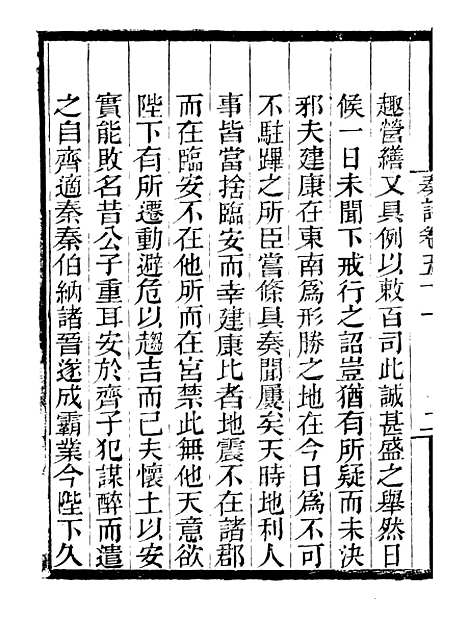 趣營繕又具例以敕百司此誠甚盛之舉然日
候一日未聞下戒行之詔豈猶有所疑而未決
邪夫建康在東南爲形勝之地在今日爲不可
不駐蹕之所臣嘗條具奏聞屢矣天時地利人
事皆當捨臨安而幸建康比者地震不在諸郡
而在臨安不在他所而在宮禁此無他天意欲
陛下有所遷動避危以趨吉而已夫懷土以安
實能敗名昔公子重耳安於齊子犯謀醉而遣
之自齊適秦秦伯納諸晉遂成霸業今陛下久